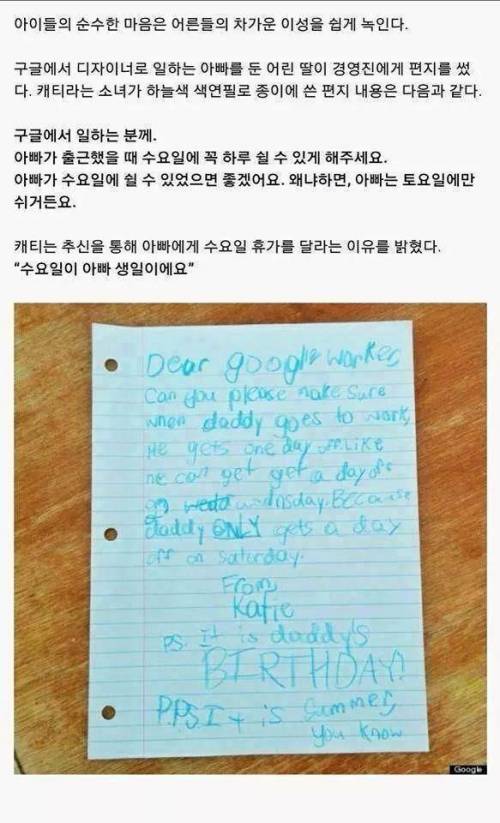 아이들의 순수한 마음은 어른들의 차가운 이성을 쉽게 녹인다.
구글에서 디자이너로 일하는 아빠를 둔 어린 딸이 경영진에게 편지를 썼
다. 캐티라는 소녀가 하늘색 색연필로 종이에 쓴 편지 내용은 다음과 같다.
구글에서 일하는 분께.
아빠가 출근했을 때 수요일에 꼭 하루 쉴 수 있게 해주세요.
아빠가 수요일에 쉴 수 있었으면 좋겠어요. 왜냐하면, 아빠는 토요일에만
쉬거든요.
캐티는 추신을 통해 아빠에게 수요일 휴가를 달라는 이유를 밝혔다.
“수요일이 아빠 생일이에요”
Dear google worker
Can you please make sure
when daddy goes to work,
He gets one day off. Like
he can get get a day off
on wednsday. Because
daddy ONLY gets a day
off on saturday.
From,
Katie
P.S. It is daddy's
BIRTHDAY!
P.P.S It is summer,
you know
Google